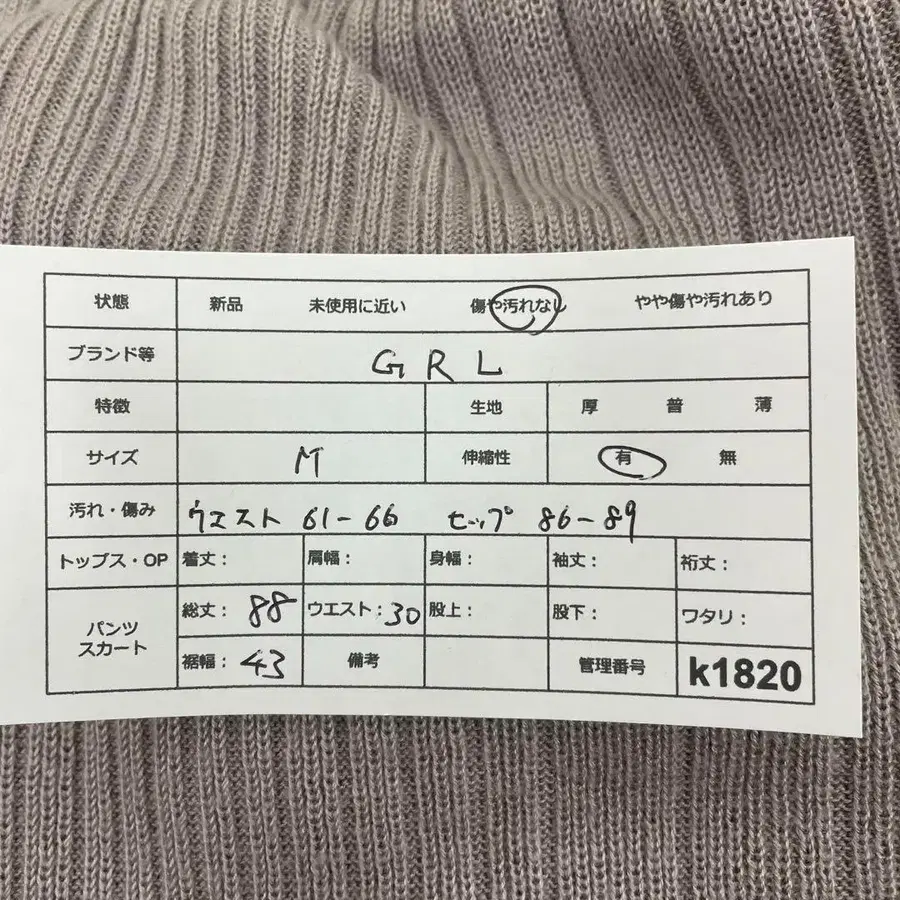 状態 新品 未使用に近い 傷や汚れなし やや傷や汚れあり
ブランド等 GRL
特徴 生地 厚 普 薄
サイズ M 伸縮性 有 無
汚れ・傷み ウエスト 61-66 ヒップ 86-89
トップス・OP 着丈: 肩幅: 身幅: 袖丈: 裄丈:
パンツ スカート 総丈: 88 ウエスト: 30 股上: 股下: ワタリ:
裾幅: 43 備考 管理番号 k1820